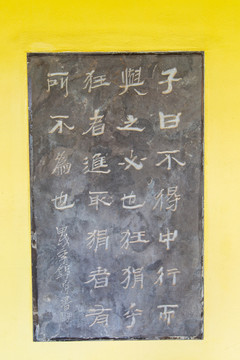 子曰不得中行而
與之必也狂狷乎
狂者進取狷者有
所不為也